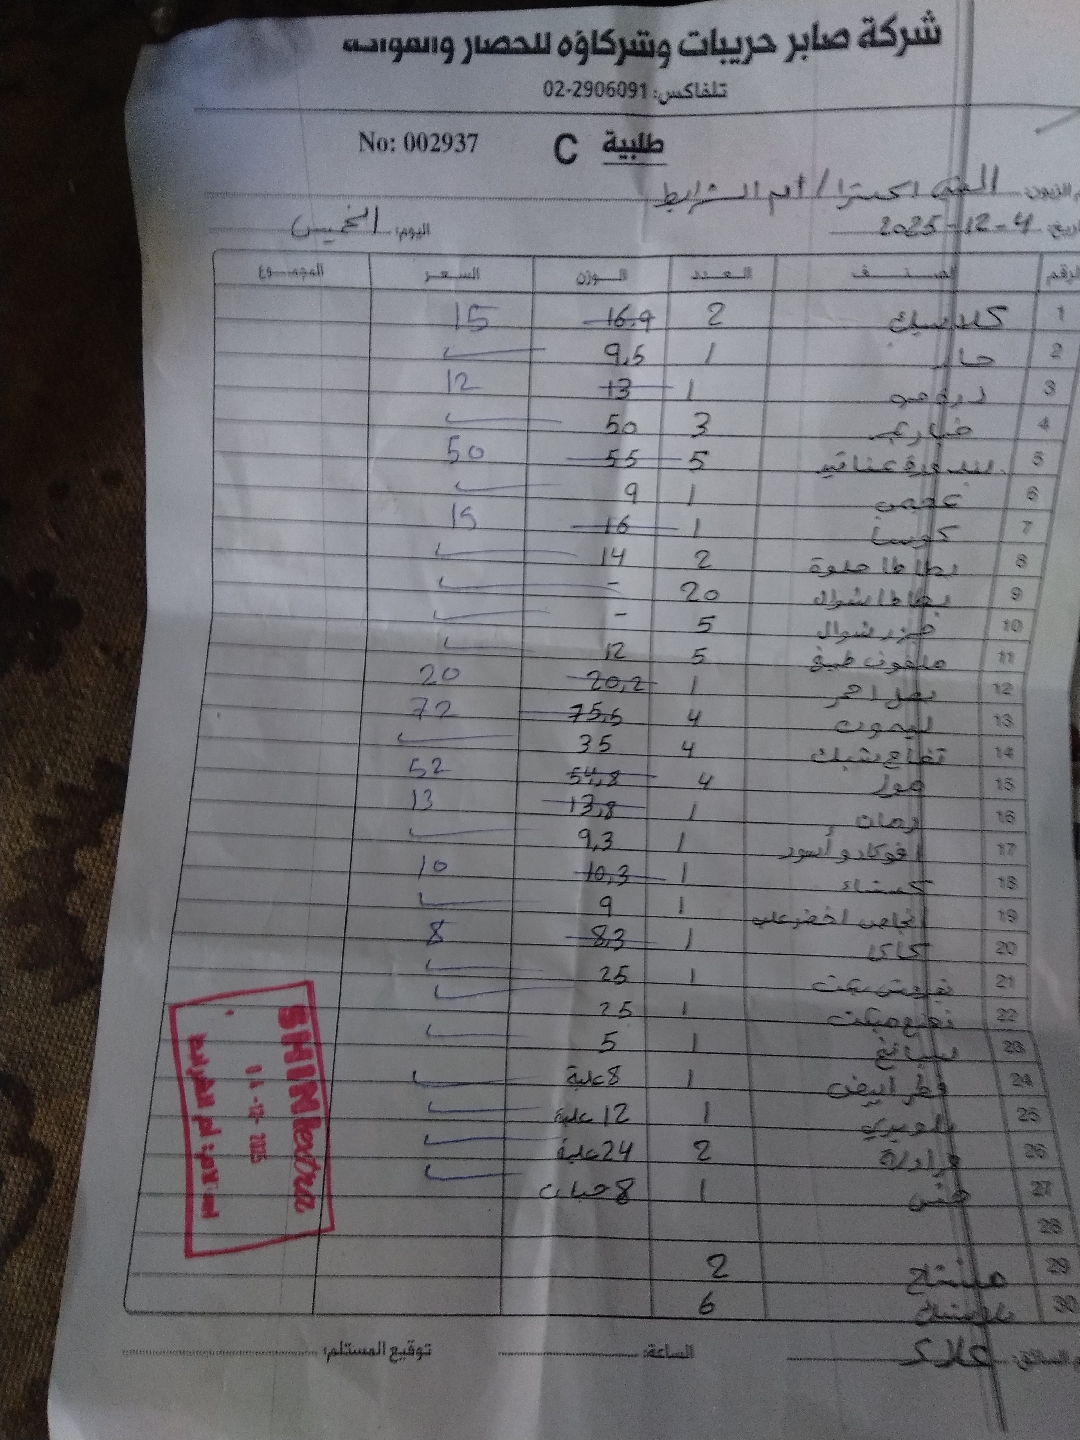 شركة صابر حريبات وشركاؤه للخضار والفواكه
تلفاكس: 02-2906091
طلبية C No: 002937
الزبون: / ام الشرايط
2025-12-4 اليوم: الخميس
الرقم الصنف العدد الوزن السعر المجموع
1 كلاسيك 2 16.9 15
2 حار 1 9,5
3 1 13 12
4 خيار 3 50
5 بندورة عناقيد 5 55 50
6 1 9
7 كوسا 1 16 15
8 بطاطا حلوة 2 14
9 بطاطا شوال 20 -
10 جزر شوال 5 -
11 ملفوف طبخ 5 12
12 بصل احمر 1 20,2 20
13 ليمون 4 75,5 72
14 تفاح شبك 4 35
15 موز 4 54,8 52
16 رمان 1 13,8 13
17 افوكادو أسود 1 9,3
18 كستناء 1 10,3 10
19 اجاص اخضر علب 1 9
20 كاكا 1 8,3 8
21 1 25
22 1 25
23 سبانخ 1 5
24 فطر ابيض 1 8 علبة
25 بلوبيري 1 12 علبة
26 فراولة 2 24 علبة
27 خس 1 8 حبات
28
29 مشتاح 2
30 بلاستيك 6
علاء الساعة: توقيع المستلم:
SHINI extra
04-12-2025
ام الشرايط